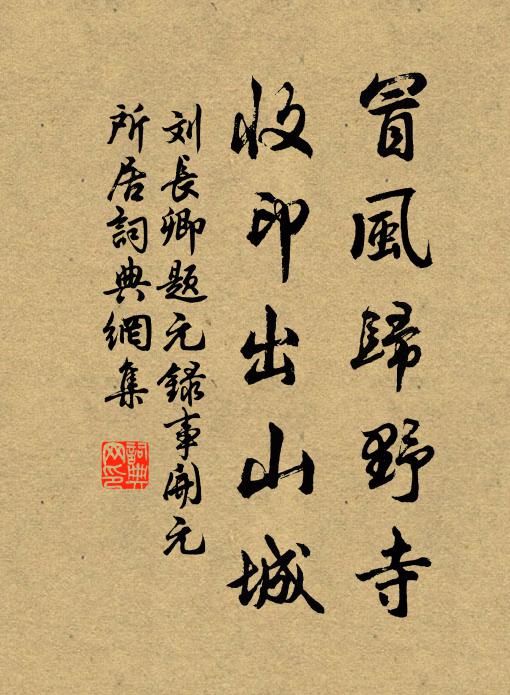 冒風歸野寺
收印出山城
刘長卿題元錄事開元
所居詞典網集
詞典网印